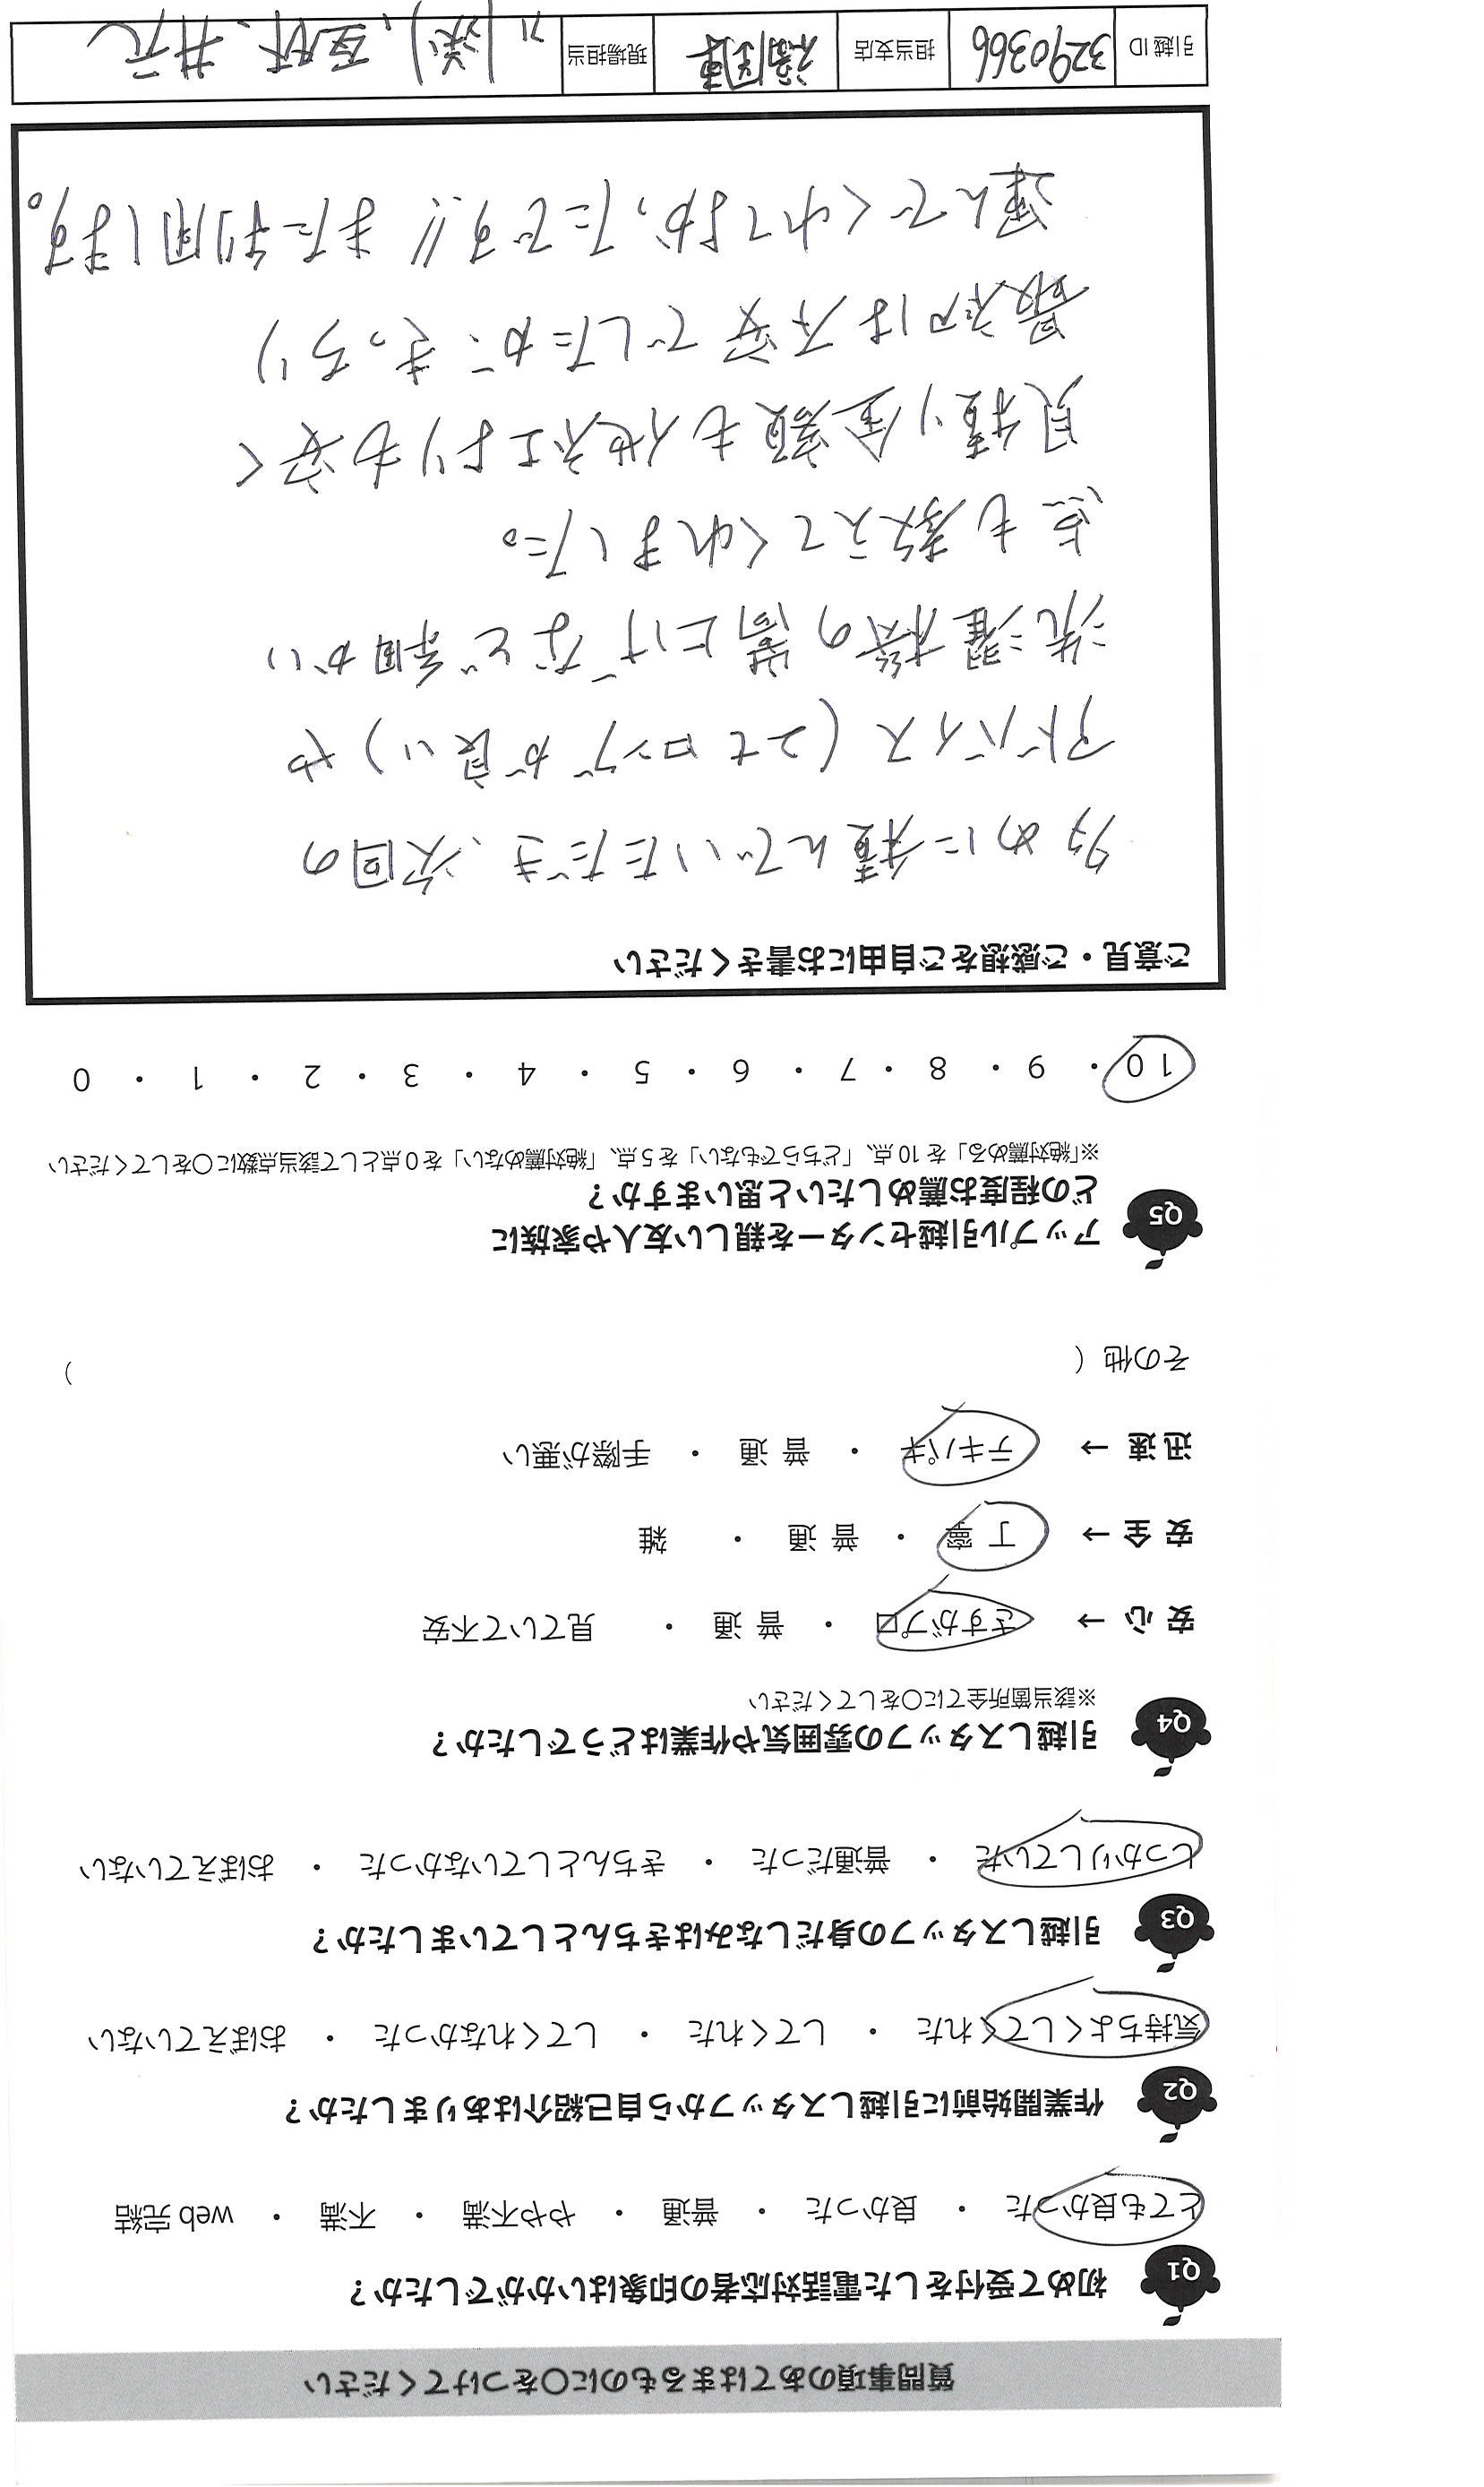 質問事項のあてはまるものに〇をつけてください
Q1 初めて受付をした電話対応者の印象はいかがでしたか？
とても良かった ・ 良かった ・ 普通 ・ やや不満 ・ 不満 ・ web完結
Q2 作業開始前に引越しスタッフから自己紹介はありましたか？
気持ちよくしてくれた ・ してくれた ・ してくれなかった ・ おぼえていない
Q3 引越しスタッフの身だしなみはきちんとしていましたか？
しっかりしていた ・ 普通だった ・ きちんとしていなかった ・ おぼえていない
Q4 引越しスタッフの雰囲気や作業はどうでしたか？
※該当箇所全てに〇をしてください
安 心 → さすがプロ ・ 普 通 ・ 見ていて不安
安 全 → 丁 寧 ・ 普 通 ・ 雑
迅 速 → テキパキ ・ 普 通 ・ 手際が悪い
その他（ ）
Q5 アップル引越センターを親しい友人や家族に
どの程度お薦めしたいと思いますか？
※「絶対薦める」を10点、「どちらでもない」を5点、「絶対薦めない」を0点として該当点数に〇をしてください
10 ・ 9 ・ 8 ・ 7 ・ 6 ・ 5 ・ 4 ・ 3 ・ 2 ・ 1 ・ 0
ご意見・ご感想をご自由にお書きください
多めに積んでいただき、次回の
アドバイス(2tロングが良い)や
洗濯機の嵩上げなど細かい
点も教えてくれました。
見積り金額も他社よりも安く
最初は不安でしたが、きっちり
運んでくれてよかったです!! また利用します。
引越ID 3290366 担当支店 福岡東 現場担当